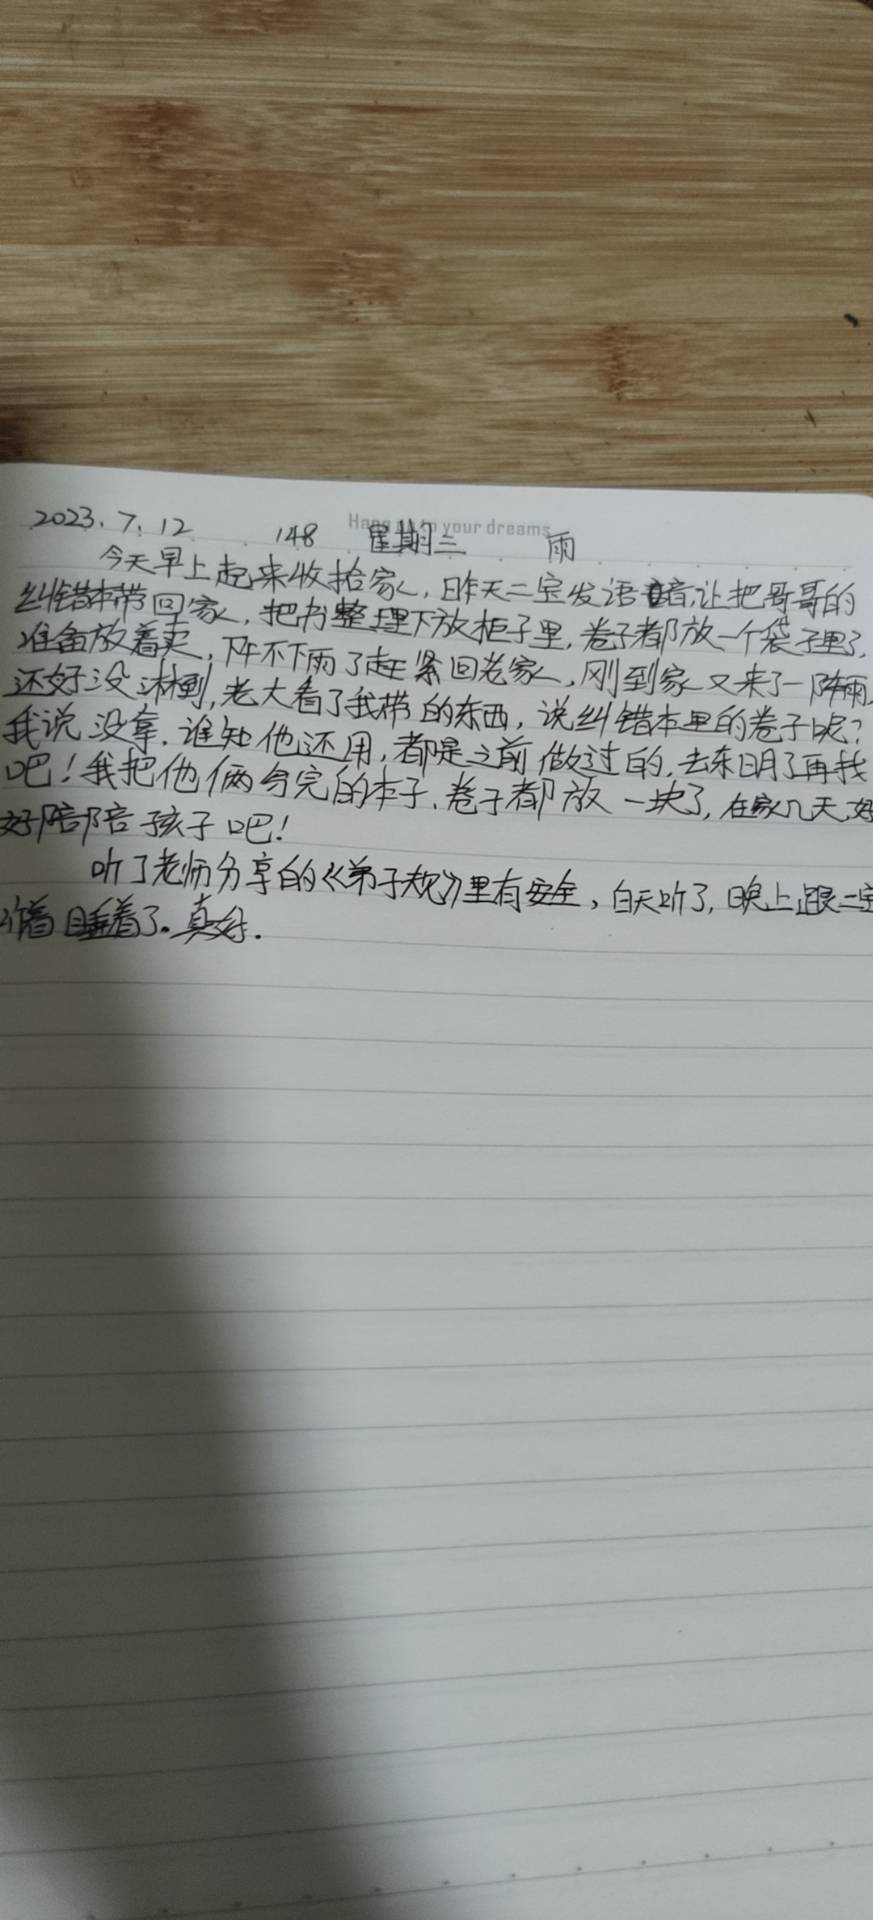 Hang on to your dreams
2023.7.12 148 星期三 雨
今天早上起来收拾家,昨天二宝发语音,让把哥哥的
纠错本带回家,把书整理下放柜子里,卷子都放一个袋子里了,
准备放着卖,下午不下雨了赶紧回老家,刚到家又来了一阵雨,
还好没淋到,老大看了我带的东西,说纠错本里的卷子呢?
我说没拿.谁知他还用,都是之前做过的,去东明了再找
吧!我把他俩写完的本子、卷子都放一块了,在家几天,好
好陪陪孩子吧!
听了老师分享的《弟子规》里有安全,白天听了,晚上跟二宝
睡着了。真好.